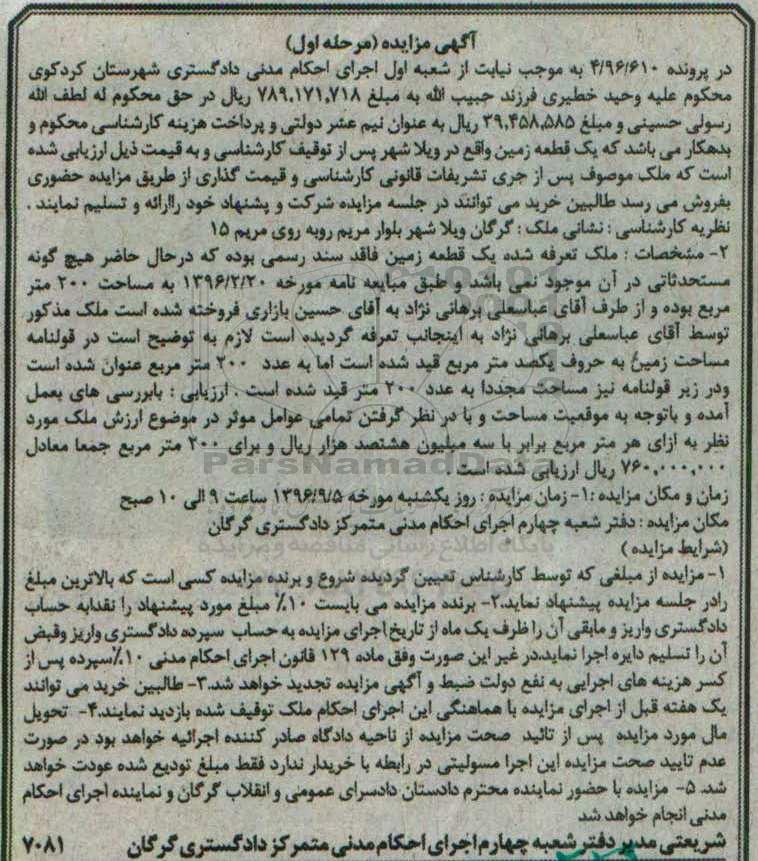 آگهی مزایده (مرحله اول)
در پرونده ۴/۹۶/۶۱۰ به موجب نیابت از شعبه اول اجرای احکام مدنی دادگستری شهرستان کردکوی
محکوم علیه وحید خطیری فرزند حبیب الله به مبلغ ۷۸۹,۱۷۱,۷۱۸ ریال در حق محکوم له لطف الله
رسولی حسینی و مبلغ ۳۹,۴۵۸,۵۸۵ ریال به عنوان نیم عشر دولتی و پرداخت هزینه کارشناسی محکوم و
بدهکار می باشد که یک قطعه زمین واقع در ویلا شهر پس از توقیف کارشناسی و به قیمت ذیل ارزیابی شده
است که ملک موصوف پس از جری تشریفات قانونی کارشناسی و قیمت گذاری از طریق مزایده حضوری
بفروش می رسد طالبین خرید می توانند در جلسه مزایده شرکت و پشنهاد خود راارائه و تسلیم نمایند .
نظریه کارشناسی : نشانی ملک : گرگان ویلا شهر بلوار مریم روبه روی مریم ۱۵
۲- مشخصات : ملک تعرفه شده یک قطعه زمین فاقد سند رسمی بوده که درحال حاضر هیچ گونه
مستحدثاتی در آن موجود نمی باشد و طبق مبایعه نامه مورخه ۱۳۹۶/۲/۲۰ به مساحت ۲۰۰ متر
مربع بوده و از طرف آقای عباسعلی برهانی نژاد به آقای حسین بازاری فروخته شده است ملک مذکور
توسط آقای عباسعلی برهانی نژاد به اینجانب تعرفه گردیده است لازم به توضیح است در قولنامه
مساحت زمین به حروف یکصد متر مربع قید شده است اما به عدد ۲۰۰ متر مربع عنوان شده است
ودر زیر قولنامه نیز مساحت مجددا به عدد ۲۰۰ متر قید شده است . ارزیابی : بابررسی های بعمل
آمده و باتوجه به موقعیت مساحت و با در نظر گرفتن تمامی عوامل موثر در موضوع ارزش ملک مورد
نظر به ازای هر متر مربع برابر با سه میلیون هشتصد هزار ریال و برای ۲۰۰ متر مربع جمعا معادل
۷۶۰,۰۰۰,۰۰۰ ریال ارزیابی شده است .
ParsNamadData
زمان و مکان مزایده :۱- زمان مزایده : روز یکشنبه مورخه ۱۳۹۶/۹/۵ ساعت ۹ الی ۱۰ صبح
مکان مزایده : دفتر شعبه چهارم اجرای احکام مدنی متمرکز دادگستری گرگان
پایگاه اطلاع رسانی مناقصه و مزایده
(شرایط مزایده )
۱- مزایده از مبلغی که توسط کارشناس تعیین گردیده شروع و برنده مزایده کسی است که بالاترین مبلغ
رادر جلسه مزایده پیشنهاد نماید.۲- برنده مزایده می بایست ۱۰٪ مبلغ مورد پیشنهاد را نقدابه حساب
دادگستری واریز و مابقی آن را ظرف یک ماه از تاریخ اجرای مزایده به حساب سپرده دادگستری واریز وقبض
آن را تسلیم دایره اجرا نماید.در غیر این صورت وفق ماده ۱۲۹ قانون اجرای احکام مدنی ۱۰٪سپرده پس از
کسر هزینه های اجرایی به نفع دولت ضبط و آگهی مزایده تجدید خواهد شد.۳- طالبین خرید می توانند
یک هفته قبل از اجرای مزایده با هماهنگی این اجرای احکام ملک توقیف شده بازدید نمایند.۴- تحویل
مال مورد مزایده پس از تائید صحت مزایده از ناحیه دادگاه صادر کننده اجرائیه خواهد بود در صورت
عدم تایید صحت مزایده این اجرا مسولیتی در رابطه با خریدار ندارد فقط مبلغ تودیع شده عودت خواهد
شد. ۵- مزایده با حضور نماینده محترم دادستان دادسرای عمومی و انقلاب گرگان و نماینده اجرای احکام
مدنی انجام خواهد شد
شریعتی مدیر دفتر شعبه چهارم اجرای احکام مدنی متمرکز دادگستری گرگان ۷۰۸۱